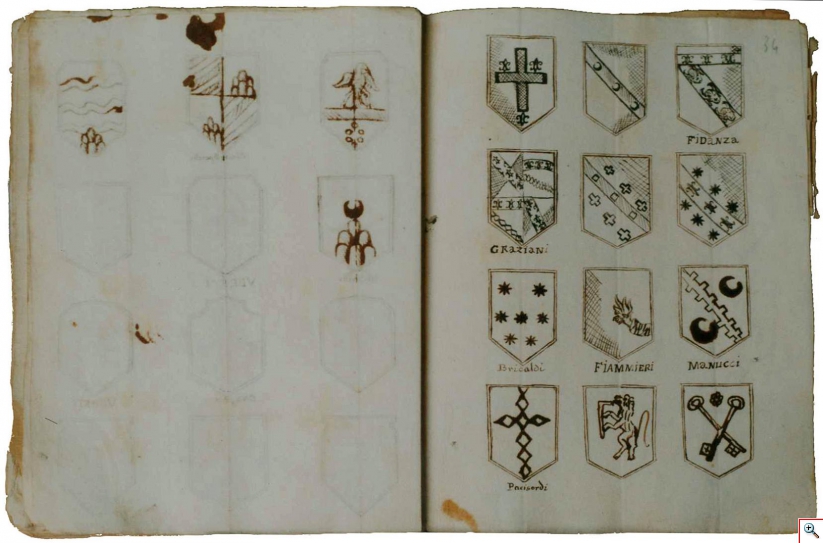 34
FIDANZA
GRAZIANI
Bricaldi
FIAMMIERI
MANUCCI